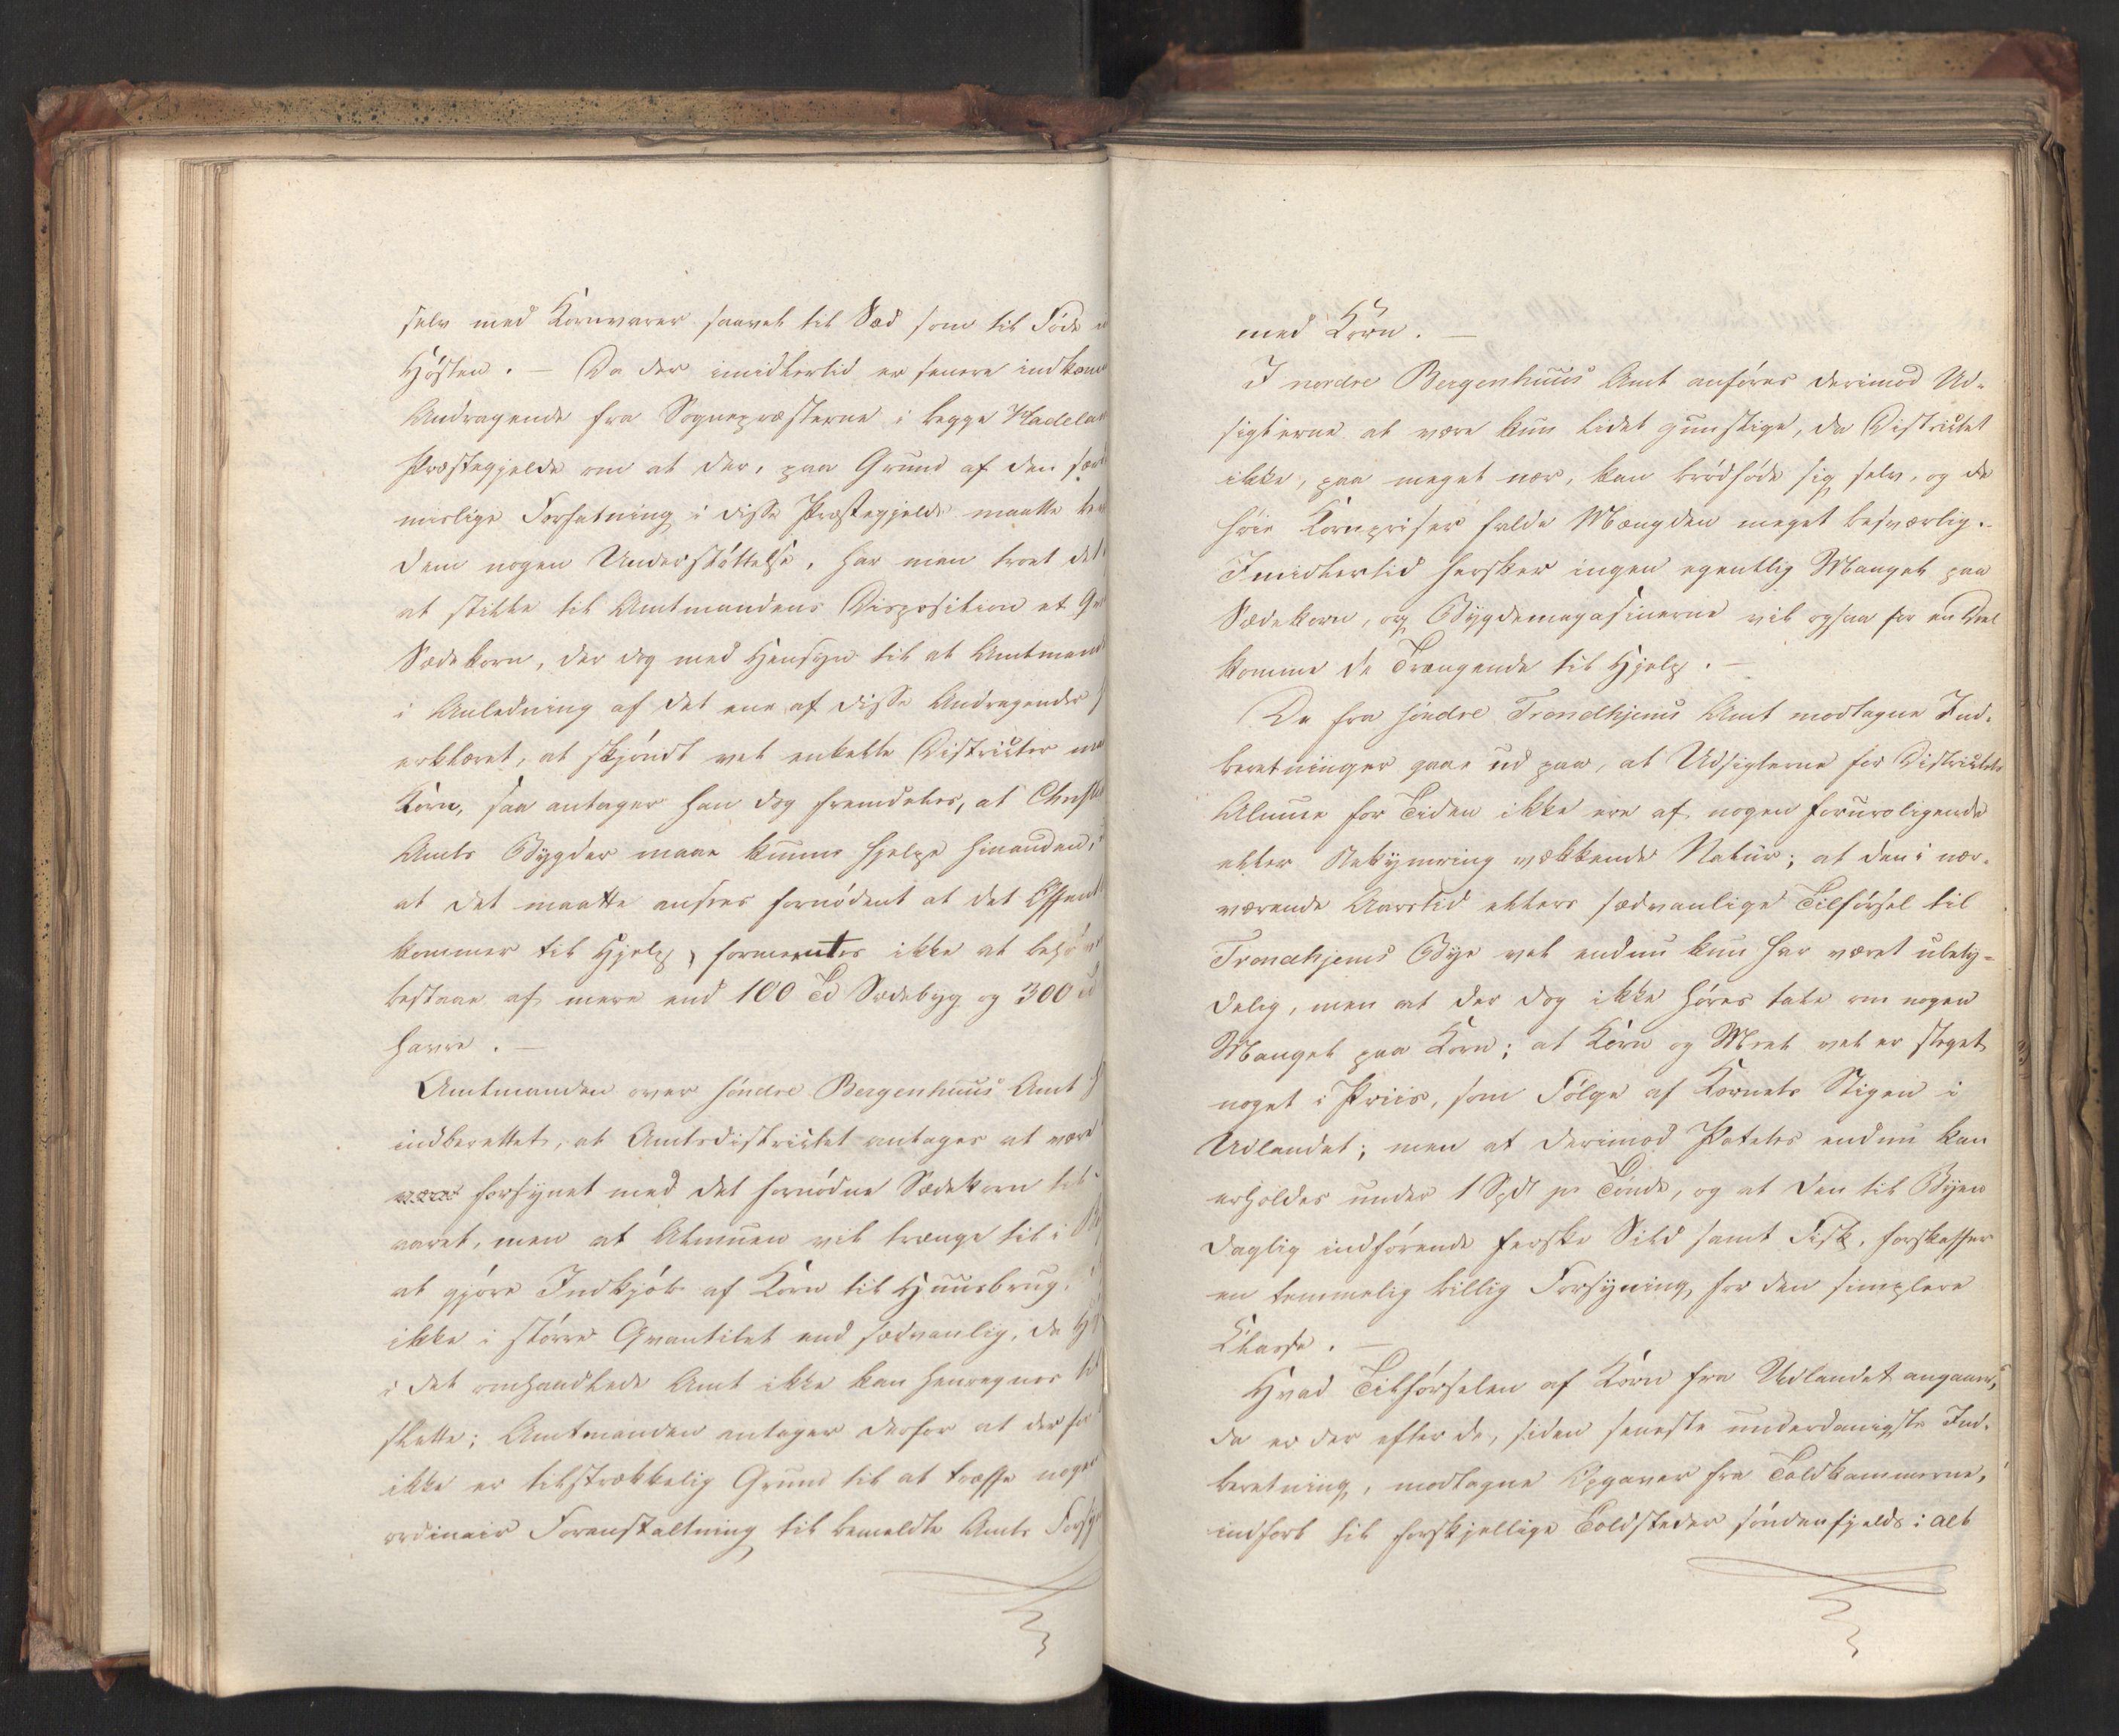 selv med Kornvarer saavel til Sæd som til Föde
Hösten. — Da der imidlertid er senere indkom
Andragende fra Sognepræsterne i begge Hadelan
Præstegjelde om at der, paa Grund af den sær
mislige Forfatning i disse Præstegjelde maatte
dem nogen Understöttelse, har man troet det
at stille til Amtmandens Disposition et
Sædekorn, der dog med Hensyn til at Amtmand
i Anledning af det ene af disse Andragender
erklæret, at skjöndt vel enkelte Districter
Korn, saa antager han dog fremdeles, at Christ
Amts Bygder maae kunne hjelpe hinanden,
at det maatte ansees fornödent at det Offent
kommer til Hjelp, formeentes ikke at behöve
bestaae af mere end 100 Td Sædebyg og 300
Havre. —
Amtmanden over söndre Bergenhuus Amt
indberettet, at Amtsdistrictet antages at være
forsynet med det fornödne Sædekorn til
aaret, men at Almuen vil trænge til i
at gjöre Indkjöb af Korn til Huusbrug,
ikke i större Qvantitet end sædvanlig, da
i det omhandlede Amt ikke kan henregnes til
slette; Amtmanden antager derfor at der
ikke er tilstrækkelig Grund til at træffe nogen
ordinair Foranstaltning til bemeldte Amts Forsy
med Korn. —
I nordre Bergenhuus Amt anföres derimod Ud-
sigterne at være kun lidet gunstige, da Districtet
ikke, paa meget nær, kan brödföde sig selv, og de
höie Kornpriser falde Mængden meget besværlig.
Imidlertid hersker ingen egentlig Mangel paa
Sædekorn, og Bygdemagasinerne vil ogsaa for en Deel
komme de Trængende til Hjelp. —
De fra söndre Trondhjems Amt modtagne Ind-
beretninger gaae ud paa, at Udsigterne for Districtets
Almue for Tiden ikke ere af nogen foruroligende
eller Bekymring vækkende Natur; at den i nær-
værende Aarstid ellers sædvanlige Tilförsel til
Trondhjems Bye vel endnu kun har været ubety-
delig, men at der dog ikke höres tale om nogen
Mangel paa Korn; at Korn og Meel vel er steget
noget i Priis, som Fölge af Kornets Stigen i
Udlandet; men at derimod Poteter endnu kan
erholdes under 1 Spdl pr Tönde, og at den til Byen
daglig indförende ferske Sild samt Fisk, forskaffer
en temmelig billig Forsyning for den simplere
Klasse. —
Hvad Tilförselen af Korn fra Udlandet angaaer,
da er der efter de, siden seneste underdanigste Ind-
beretning, modtagne Opgaver fra Toldkammerne,
indfört til forskjellige Toldsteder söndenfjelds: alt